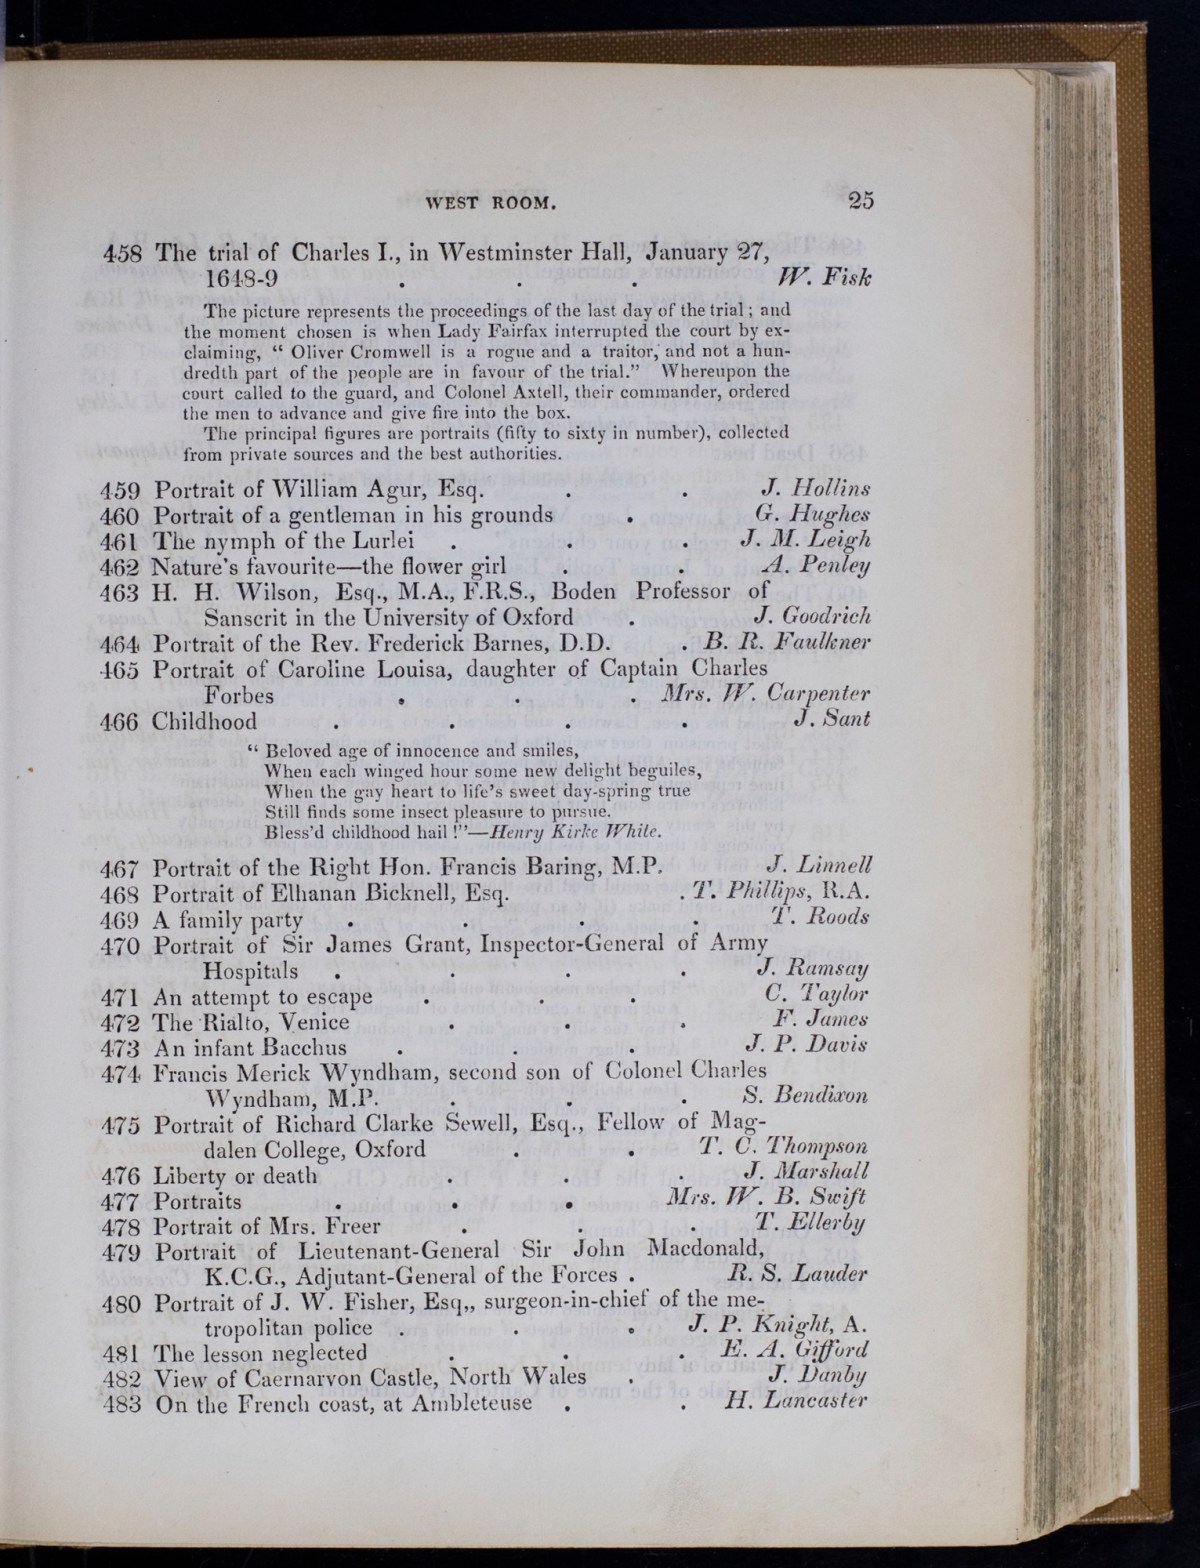 WEST ROOM. 25
458 The trial of Charles I., in Westminster Hall, January 27,
1648-9 . . . W. Fisk
The picture represents the proceedings of the last day of the trial; and
the moment chosen is when Lady Fairfax interrupted the court by ex-
claiming, “ Oliver Cromwell is a rogue and a traitor, and not a hun-
dredth part of the people are in favour of the trial.” Whereupon the
court called to the guard, and Colonel Axtell, their commander, ordered
the men to advance and give fire into the box.
The principal figures are portraits (fifty to sixty in number), collected
from private sources and the best authorities.
459 Portrait of William Agur, Esq. . . J. Hollins
460 Portrait of a gentleman in his grounds . G. Hughes
461 The nymph of the Lurlei . . . J. M. Leigh
462 Nature's favourite—the flower girl . . A. Penley
463 H. H. Wilson, Esq., M.A., F.R.S., Boden Professor of
Sanscrit in the University of Oxford . J. Goodrich
464 Portrait of the Rev. Frederick Barnes, D.D. . B. R. Faulkner
465 Portrait of Caroline Louisa, daughter of Captain Charles
Forbes . . . Mrs. W. Carpenter
466 Childhood . . . . J. Sant
“ Beloved age of innocence and smiles,
When each winged hour some new delight beguiles,
When the gay heart to life's sweet day-spring true
Still finds some insect pleasure to pursue.
Bless'd childhood hail !”—Henry Kirke White.
467 Portrait of the Right Hon. Francis Baring, M.P. J. Linnell
468 Portrait of Elhanan Bicknell, Esq. . T. Phillips, R.A.
469 A family party . . . . T. Roods
470 Portrait of Sir James Grant, Inspector-General of Army
Hospitals . . . . J. Ramsay
471 An attempt to escape . . . C. Taylor
472 The Rialto, Venice . . . F. James
473 An infant Bacchus . . . J. P. Davis
474 Francis Merick Wyndham, second son of Colonel Charles
Wyndham, M.P. . . . S. Bendixon
475 Portrait of Richard Clarke Sewell, Esq., Fellow of Mag-
dalen College, Oxford . . T. C. Thompson
476 Liberty or death . . . J. Marshall
477 Portraits . . . Mrs. W. B. Swift
478 Portrait of Mrs. Freer . . . T. Ellerby
479 Portrait of Lieutenant-General Sir John Macdonald,
K.C.G., Adjutant-General of the Forces . R. S. Lauder
480 Portrait of J. W. Fisher, Esq,, surgeon-in-chief of the me-
tropolitan police . . . J. P. Knight, A.
481 The lesson neglected . . . E. A. Gifford
482 View of Caernarvon Castle, North Wales . J. Danby
483 On the French coast, at Ambleteuse . . H. Lancaster